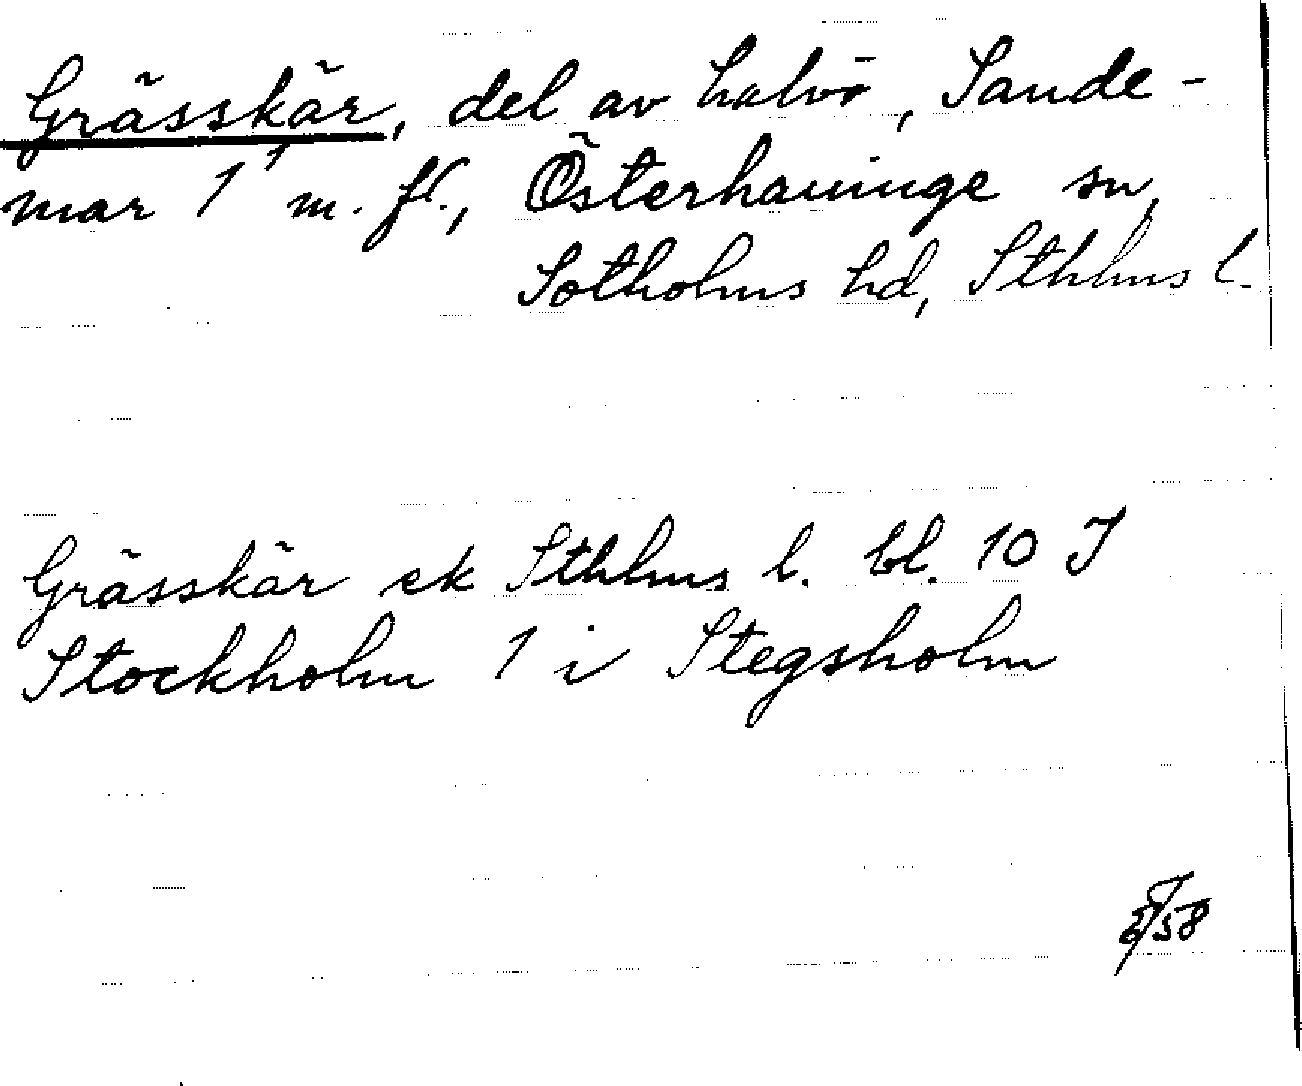 Grässkär, del av halvö, Sande-
mar 1¹ m. fl., Österhaninge sn,
Sotholms hd, Sthlms l.
Grässkär ek Sthlms l. bl. 10 J
Stockholm 1 i Stegsholm
58